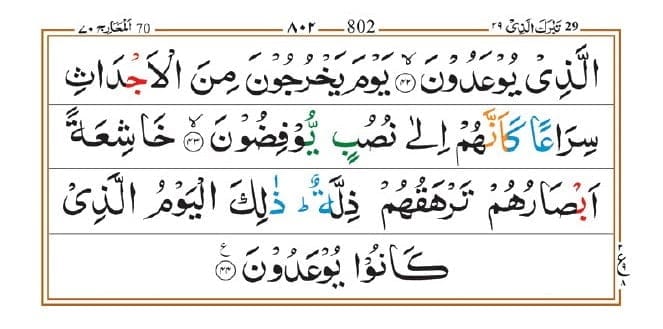 29 تبٰرک الذی ٢٩ 802 ٨٠٢ 70 المعارج ٧٠
الَّذِیْ یُوْعَدُوْنَ ۙ﴿۴۲﴾ یَوْمَ یَخْرُجُوْنَ مِنَ الْاَجْدَاثِ
سِرَاعًا كَاَنَّهُمْ اِلٰی نُصُبٍ یُّوْفِضُوْنَ ۙ﴿۴۳﴾ خَاشِعَةً
اَبْصَارُهُمْ تَرْهَقُهُمْ ذِلَّةٌ ؕ ذٰلِكَ الْیَوْمُ الَّذِیْ
كَانُوْا یُوْعَدُوْنَ ﴿۴۴﴾ ع